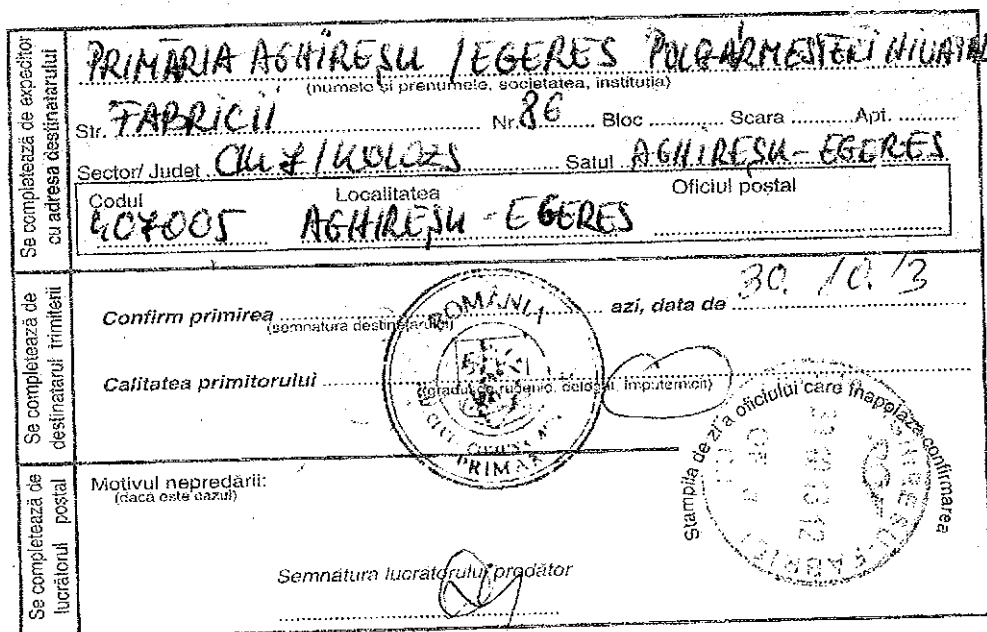 Se completează de expeditor
cu adresa destinatarului
PRIMĂRIA AGHIREȘU / EGERES POLGÁRMESTERI HIVATAL
(numele și prenumele, societatea, instituția)
Str. FABRICII Nr. 86 Bloc Scara Apt.
Sector/ Județ CLUJ / KOLOZS Satul AGHIREȘU - EGERES
Codul Localitatea Oficiul poștal
407005 AGHIREȘU - EGERES
Se completează de
destinatarul trimiterii
Confirm primirea azi, data de 30. 10. 13
(semnatura destinatarului)
Calitatea primitorului
(gradul de rudenie, delegat, împuternicit)
ROMÂNIA
CLUJ
PRIMAR
Stampila de zi a oficiului care înapoiază confirmarea
AGHIREȘU-FABRICI
Se completează de
lucrătorul poștal
Motivul nepredării:
(dacă este cazul)
Semnătura lucrătorului predător